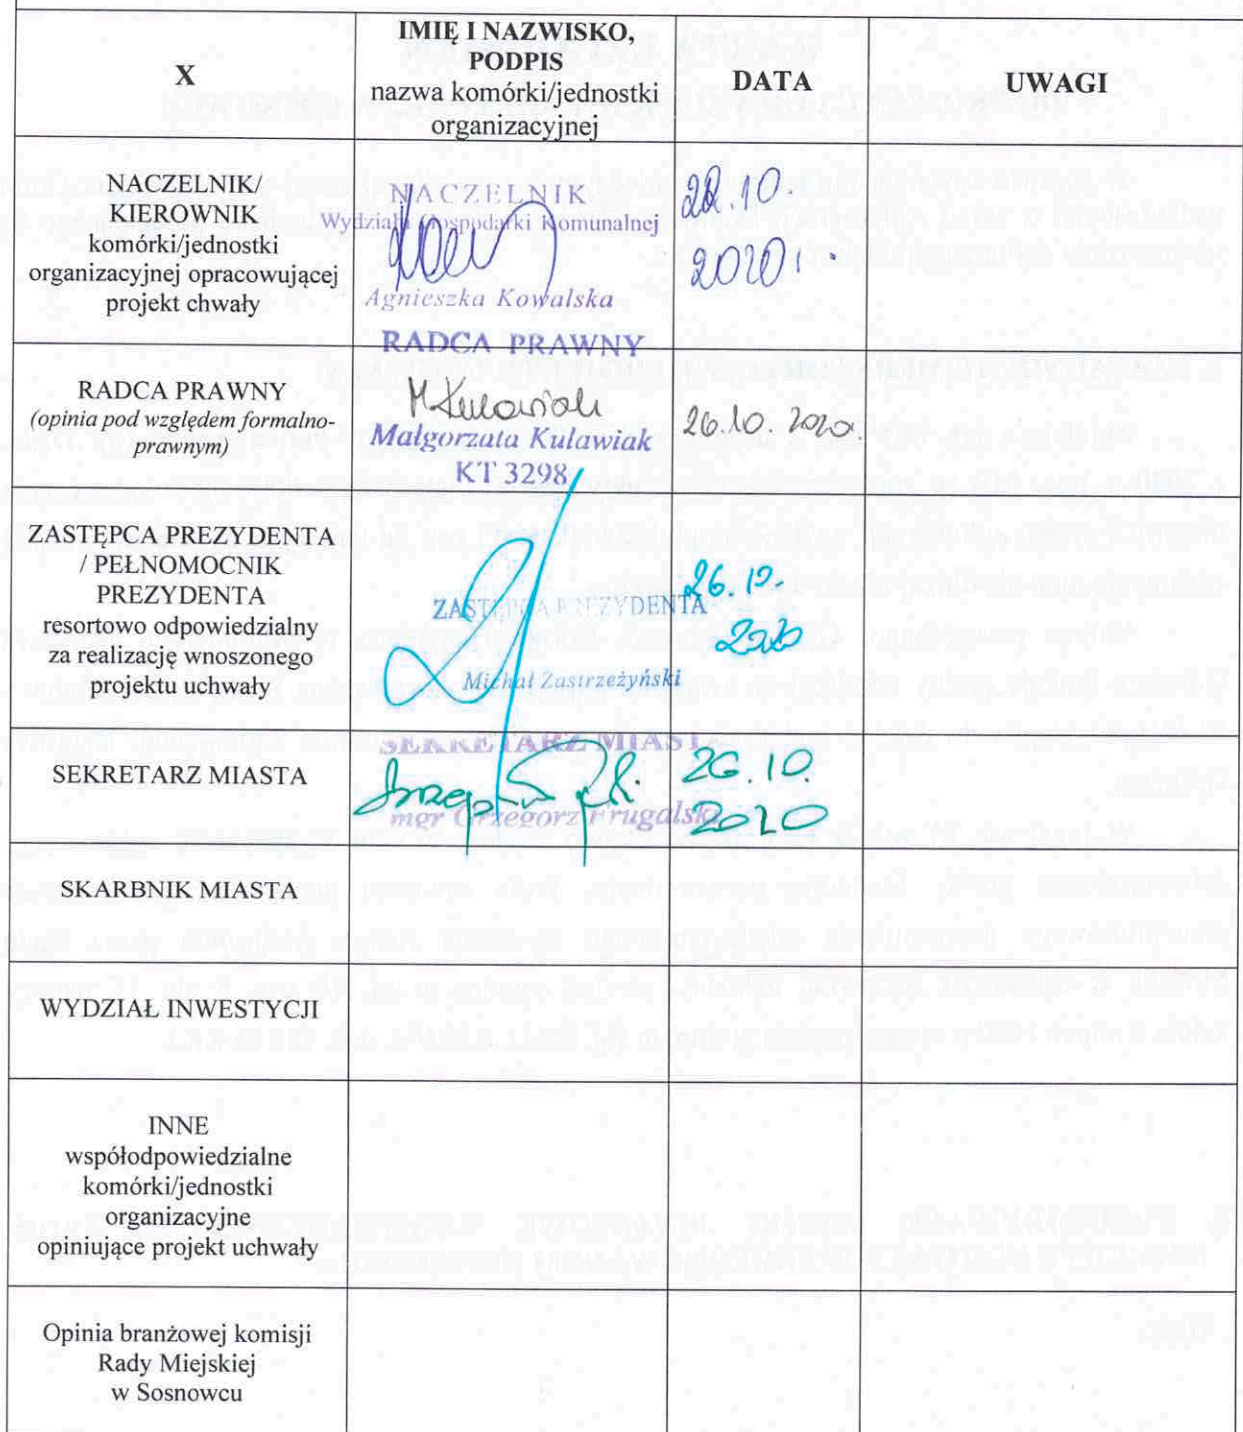 X
IMIĘ I NAZWISKO,
PODPIS
nazwa komórki/jednostki
organizacyjnej
DATA
UWAGI
NACZELNIK/
KIEROWNIK
komórki/jednostki
organizacyjnej opracowującej
projekt chwały
NACZELNIK
Wydziału Gospodarki Komunalnej
Agnieszka Kowalska
22.10.
2020r.
RADCA PRAWNY
(opinia pod względem formalno-
prawnym)
RADCA PRAWNY
M Kulawiak
Małgorzata Kulawiak
KT 3298
26.10.2020r.
ZASTĘPCA PREZYDENTA
/ PEŁNOMOCNIK
PREZYDENTA
resortowo odpowiedzialny
za realizację wnoszonego
projektu uchwały
ZASTĘPCA PREZYDENTA
Michał Zastrzeżyński
26.10.
2020
SEKRETARZ MIASTA
SEKRETARZ MIASTA
mgr Grzegorz Frugalski
26.10.
2020
SKARBNIK MIASTA
WYDZIAŁ INWESTYCJI
INNE
współodpowiedzialne
komórki/jednostki
organizacyjne
opiniujące projekt uchwały
Opinia branżowej komisji
Rady Miejskiej
w Sosnowcu